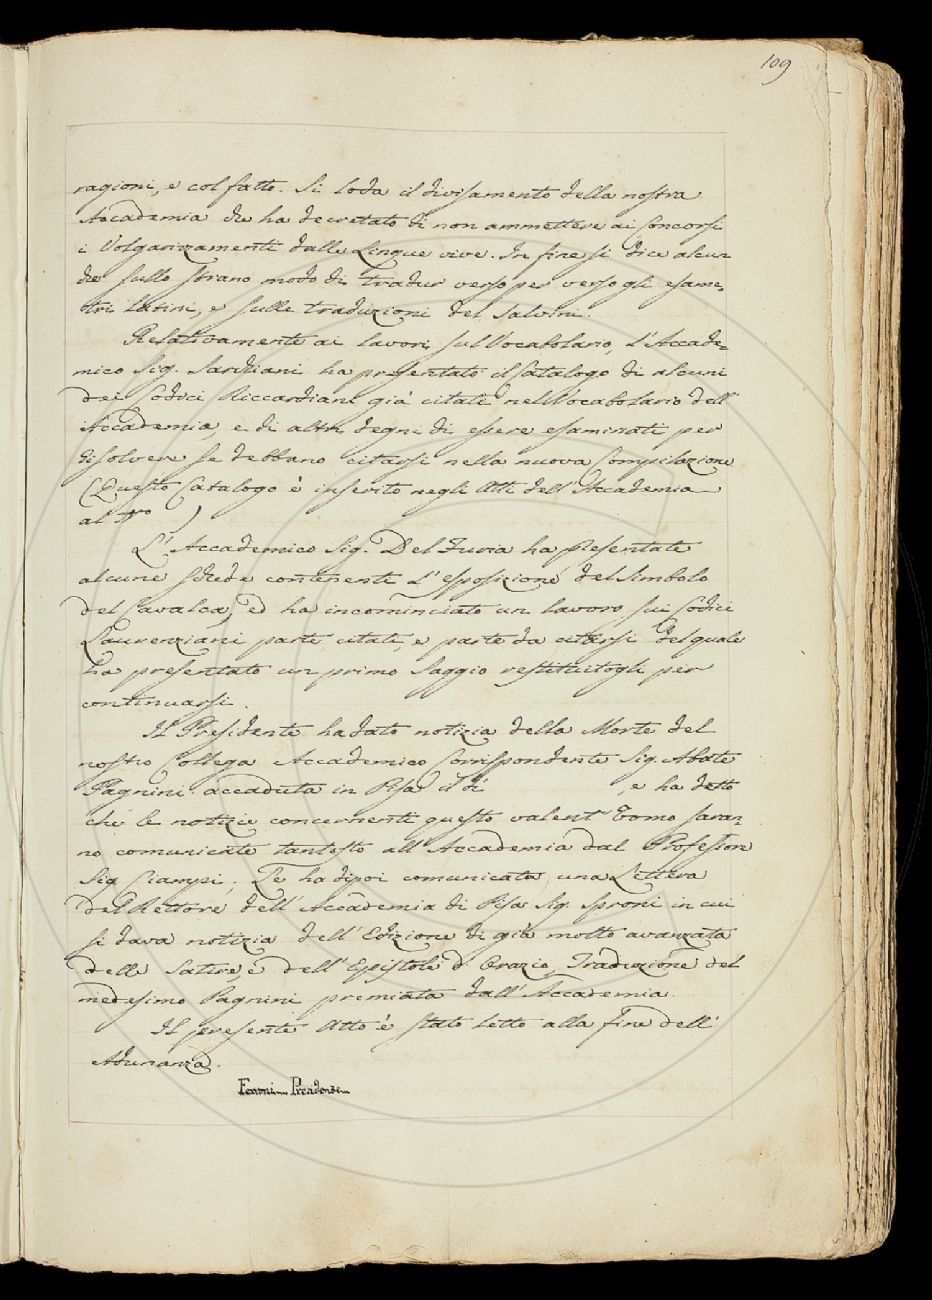 109
ragioni, e col fatto. Si loda il divisamento della nostra
Accademia che ha decretato di non ammettere ai Concorsi
i Volgarizzamenti dalle Lingue vive. In fine si dice alcun
che sullo strano modo di tradur verso per verso gli esame,
tri Latini, e sulle traduzioni del Salvini.
Relativamente ai lavori sul Vocabolario, l'Accade=
mico Sig. Sarchiani ha presentato il Catalogo di alcuni
dei Codici Riccardiani già citati nel Vocabolario dell'
Accademia, e di altri degni di essere esaminati per
risolvere se debbano citarsi nella nuova Compilazione
(Questo Catalogo è inserito negli Atti dell'Accademia
al Nro )
L'Accademico Sig. Del Furia ha presentate
alcune schede contenenti l'esposizione del Simbolo
del Cavalca, ed ha incominciato un lavoro sui Codici
Laurenziani parte citati, e parte da citarsi del quale
ha presentato un primo Saggio restituitogli per
continuarsi.
Il Presidente ha dato notizia della Morte del
nostro Collega Accademico Corrispondente Sig. Abate
Pagnini accaduta in Pisa il dì , e ha detto
che le notizie concernenti questo valent'Uomo saran=
no comunicate tantosto all'Accademia dal Professore
Sig. Ciampi. Le ha dipoi comunicata una Lettera
del Rettore dell'Accademia di Pisa Sig. Sproni in cui
si dava notizia dell'Edizione di già molto avanzata
delle Satire, e dell'Epistole d'Orazio, Traduzione del
medesimo Pagnini premiata dall'Accademia.
Il presente Atto è stato letto alla fine dell'
Adunanza.
Ferroni Presidente